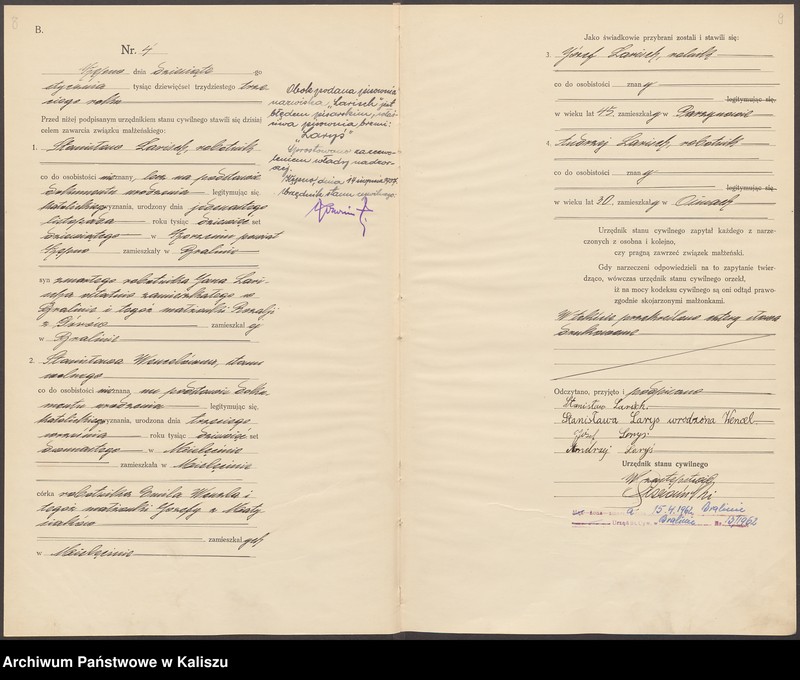 B.
Nr. 4
Kępno dnia dziesiąte go
stycznia tysiąc dziewięćset trzydziestego trze-
ciego roku
Przed niżej podpisanym urzędnikiem stanu cywilnego stawił się dzisiaj
celem zawarcia związku małżeńskiego:
1. Stanisław Larisch, robotnik
co do osobistości nieznany, lecz na podstawie
dokumentu urodzenia legitymując się,
katolickiego wyznania, urodzony dnia
listopada roku tysiąc dziewięć set
dziewiątego w powiat
Kępno zamieszkały w Bralinie
syn zmarłego robotnika Jana Lari-
scha ostatnio zamieszkałego w
Bralinie i tegoż małżonki Rozalji
z zamieszkał ej
w Bralinie
2. Stanisława Wenclówna, stanu
wolnego
co do osobistości nieznana, na podstawie doku-
mentu urodzenia legitymując się,
katolickiego wyznania, urodzona dnia trzeciego
września roku tysiąc dziewięć set
w Mielęcinie
zamieszkała w Mielęcinie
córka robotnika Emila Wencla i
tegoż małżonki Józefy z
zamieszkał ych
w Mielęcinie
Obok podana pisownia
nazwiska "Larisch" jest
błędem pisarskim, właś-
ciwa pisownia brzmi:
"Laryś"
Sprostowano za zezwo-
leniem władzy nadzor-
czej.
Kępno, dnia 14 sierpnia
Urzędnik stanu cywilnego:
Jako świadkowie przybrani zostali i stawili się:
3. Józef Larisch,
co do osobistości znany
legitymując się,
w wieku lat 45, zamieszkały w
4. Andrzej Larisch, robotnik
co do osobistości znany
legitymując się,
w wieku lat 30, zamieszkały w
Urzędnik stanu cywilnego zapytał każdego z narze-
czonych z osobna i kolejno,
czy pragną zawrzeć związek małżeński.
Gdy narzeczeni odpowiedzieli na to zapytanie twier-
dząco, wówczas urzędnik stanu cywilnego orzekł,
iż na mocy kodeksu cywilnego są oni odtąd prawo-
zgodnie skojarzonymi małżonkami.
przekreślono cztery słowa
drukowane
Odczytano, przyjęto i podpisano
Stanisław Larisch.
Stanisława Larys wrodzona Wencel
Józef Lorys
Andrzej Laryś
Urzędnik stanu cywilnego
W zastępstwie
15.4.1962 Bralinie
Urząd Bralinie Nr. 13/1962
Archiwum Państwowe w Kaliszu